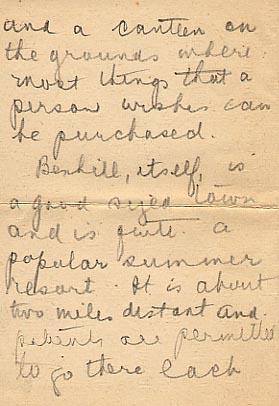 and a canteen on
the grounds where
most things that a
person wishes can
be purchased.
Bexhill, itself, is
a good sized town
and is quite a
popular summer
resort. It is about
two miles distant and
patients are permitted
to go there each